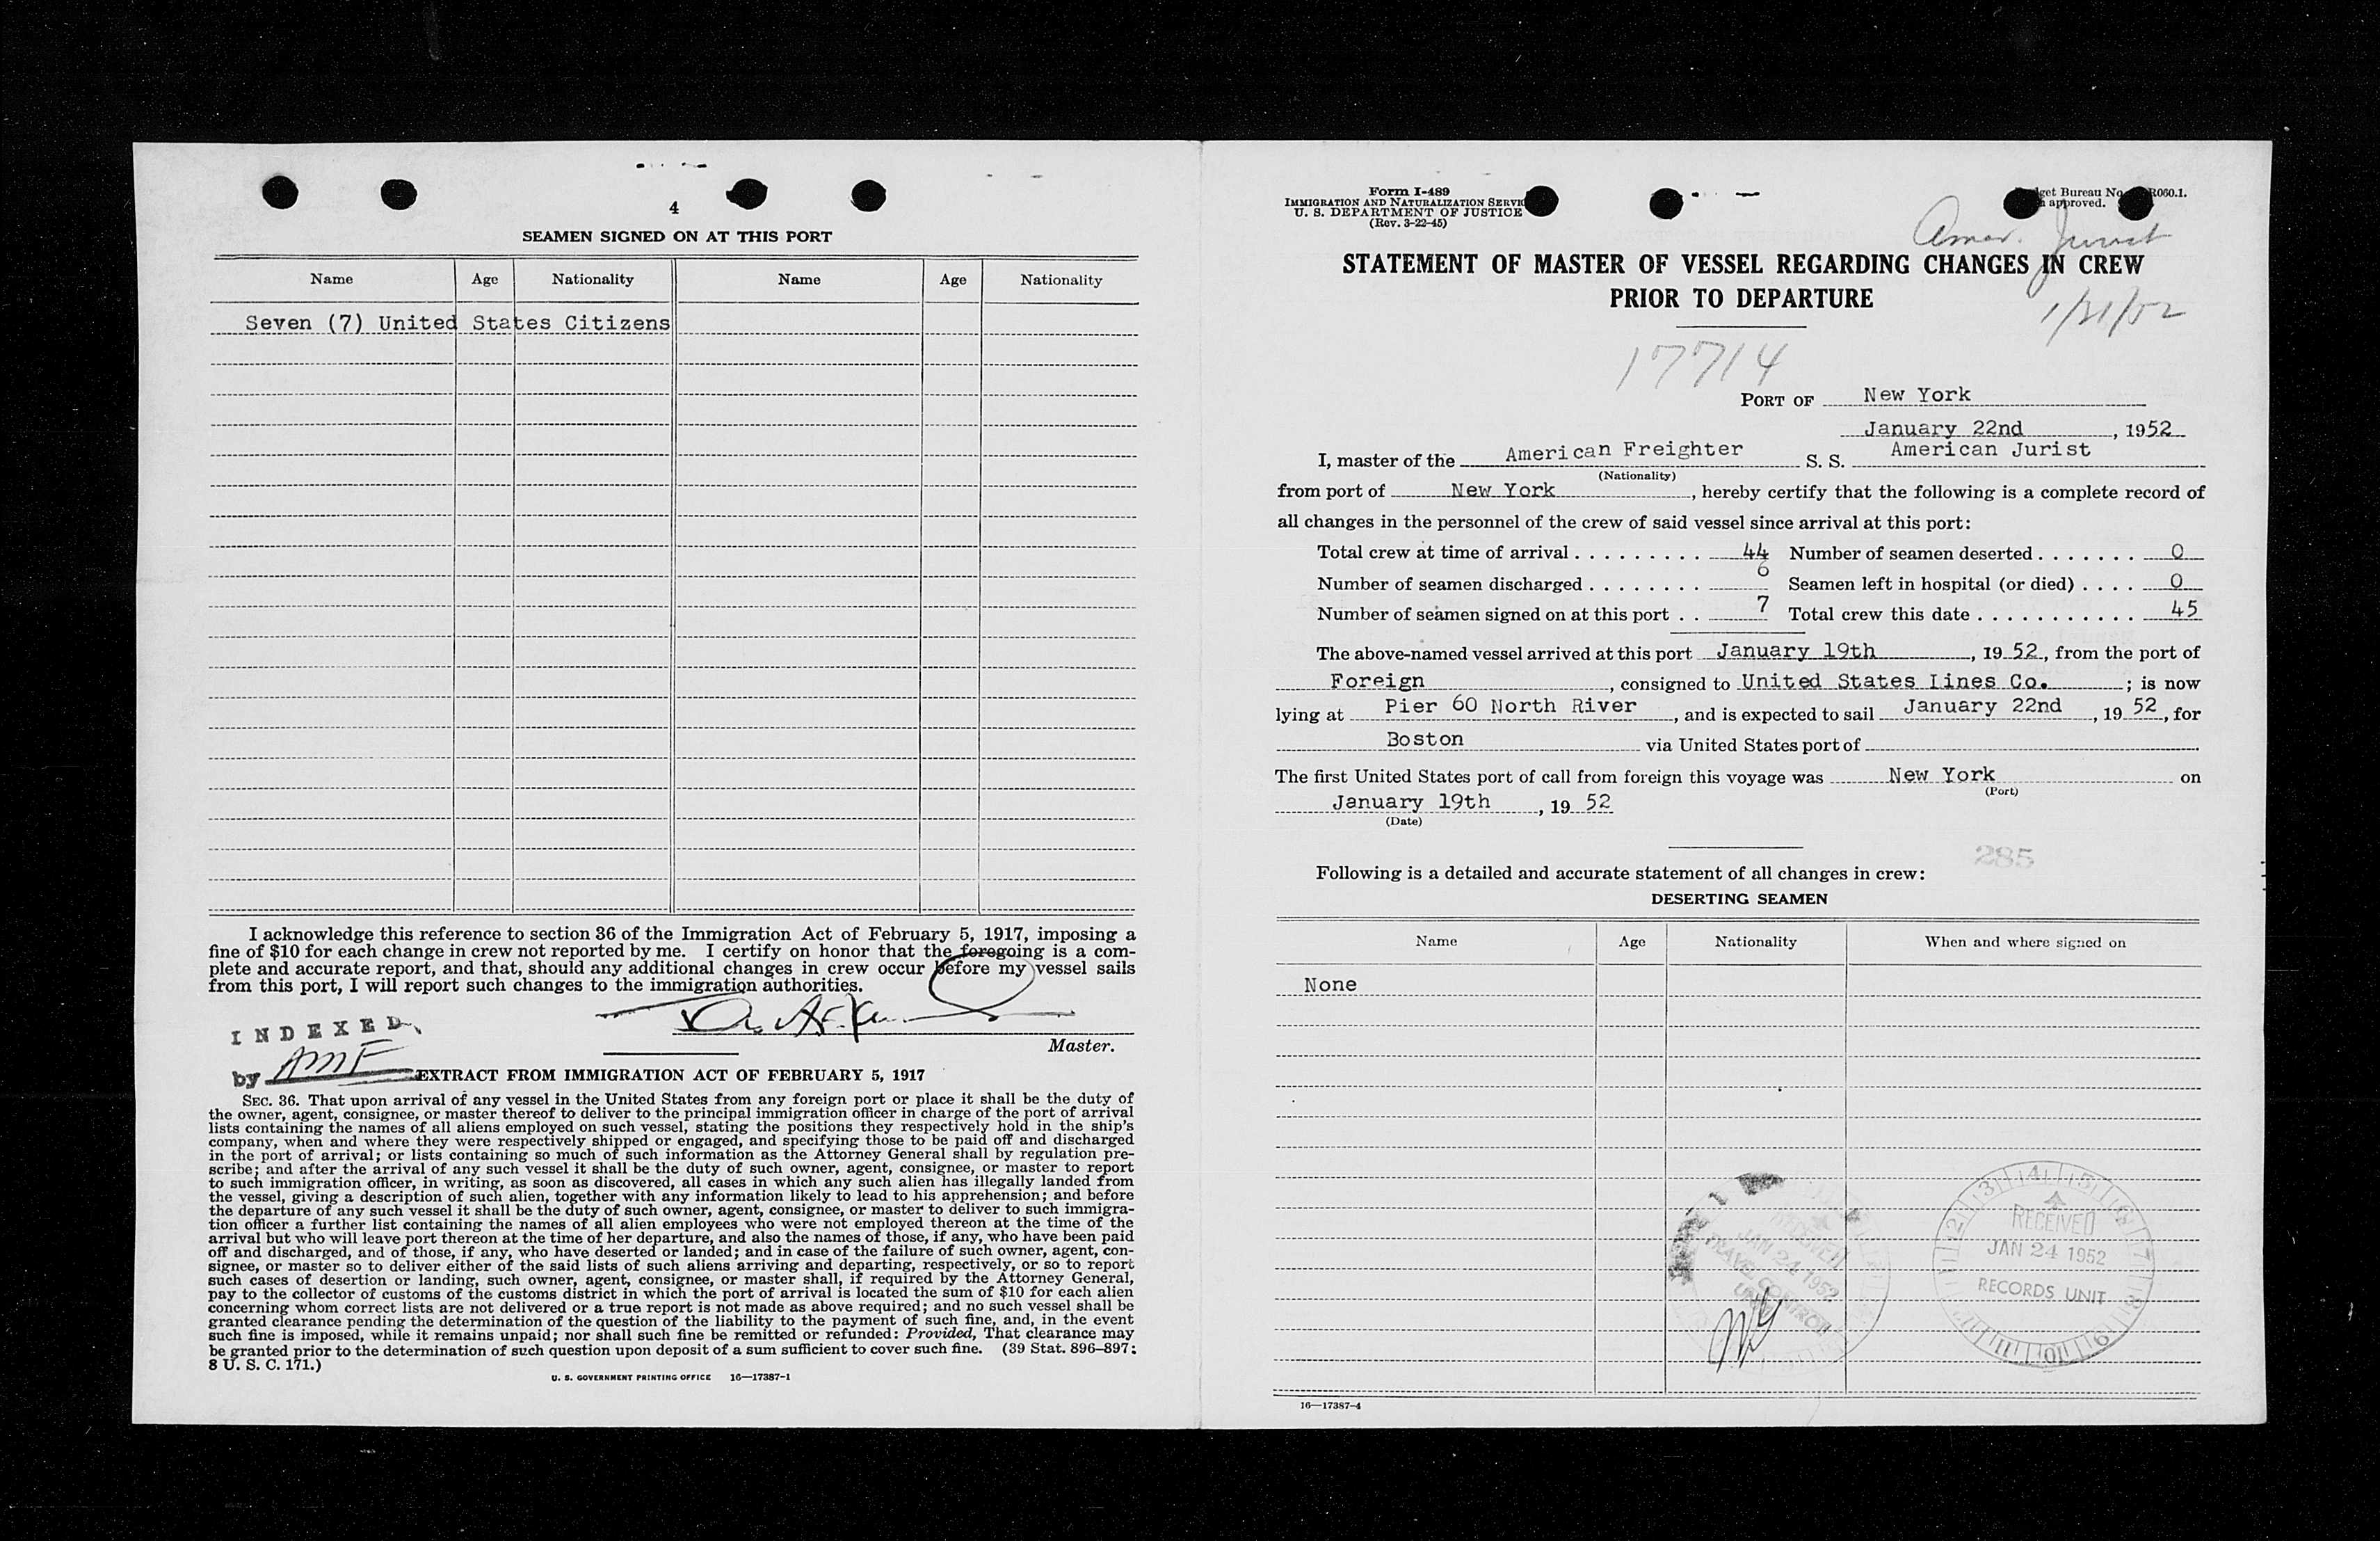 4
SEAMEN SIGNED ON AT THIS PORT
Name Age Nationality Name Age Nationality
Seven (7) United States Citizens
I acknowledge this reference to section 36 of the Immigration Act of February 5, 1917, imposing a
fine of $10 for each change in crew not reported by me. I certify on honor that the foregoing is a com-
plete and accurate report, and that, should any additional changes in crew occur before my vessel sails
from this port, I will report such changes to the immigration authorities.
Master.
INDEXED
by AMF
EXTRACT FROM IMMIGRATION ACT OF FEBRUARY 5, 1917
SEC. 36. That upon arrival of any vessel in the United States from any foreign port or place it shall be the duty of
the owner, agent, consignee, or master thereof to deliver to the principal immigration officer in charge of the port of arrival
lists containing the names of all aliens employed on such vessel, stating the positions they respectively hold in the ship's
company, when and where they were respectively shipped or engaged, and specifying those to be paid off and discharged
in the port of arrival; or lists containing so much of such information as the Attorney General shall by regulation pre-
scribe; and after the arrival of any such vessel it shall be the duty of such owner, agent, consignee, or master to report
to such immigration officer, in writing, as soon as discovered, all cases in which any such alien has illegally landed from
the vessel, giving a description of such alien, together with any information likely to lead to his apprehension; and before
the departure of any such vessel it shall be the duty of such owner, agent, consignee, or master to deliver to such immigra-
tion officer a further list containing the names of all alien employees who were not employed thereon at the time of the
arrival but who will leave port thereon at the time of her departure, and also the names of those, if any, who have been paid
off and discharged, and of those, if any, who have deserted or landed; and in case of the failure of such owner, agent, con-
signee, or master so to deliver either of the said lists of such aliens arriving and departing, respectively, or so to report
such cases of desertion or landing, such owner, agent, consignee, or master shall, if required by the Attorney General,
pay to the collector of customs of the customs district in which the port of arrival is located the sum of $10 for each alien
concerning whom correct lists are not delivered or a true report is not made as above required; and no such vessel shall be
granted clearance pending the determination of the question of the liability to the payment of such fine, and, in the event
such fine is imposed, while it remains unpaid; nor shall such fine be remitted or refunded: Provided, That clearance may
be granted prior to the determination of such question upon deposit of a sum sufficient to cover such fine. (39 Stat. 896–897;
8 U. S. C. 171.)
U. S. GOVERNMENT PRINTING OFFICE 16—17387-1
Form I-489
IMMIGRATION AND NATURALIZATION SERVIC
U. S. DEPARTMENT OF JUSTICE
(Rev. 3-22-45)
get Bureau No. R060.1.
approved.
Amer. Jurist
STATEMENT OF MASTER OF VESSEL REGARDING CHANGES IN CREW
PRIOR TO DEPARTURE
1/21/52
17714
PORT OF New York
January 22nd, 1952
I, master of the American Freighter S. S. American Jurist
(Nationality)
from port of New York, hereby certify that the following is a complete record of
all changes in the personnel of the crew of said vessel since arrival at this port:
Total crew at time of arrival . . . . . . . . . 44 Number of seamen deserted . . . . . . . 0
Number of seamen discharged . . . . . . . . 6 Seamen left in hospital (or died) . . . . 0
Number of seamen signed on at this port . . 7 Total crew this date . . . . . . . . . . . 45
The above-named vessel arrived at this port January 19th, 19 52, from the port of
Foreign, consigned to United States Lines Co. ; is now
lying at Pier 60 North River, and is expected to sail January 22nd, 19 52, for
Boston via United States port of
The first United States port of call from foreign this voyage was New York on
(Port)
January 19th, 19 52
(Date)
285
Following is a detailed and accurate statement of all changes in crew:
DESERTING SEAMEN
Name Age Nationality When and where signed on
None
RECEIVED
JAN 24 1952
TRAVEL CONTROL
UNIT
RECEIVED
JAN 24 1952
RECORDS UNIT
16—17387-4